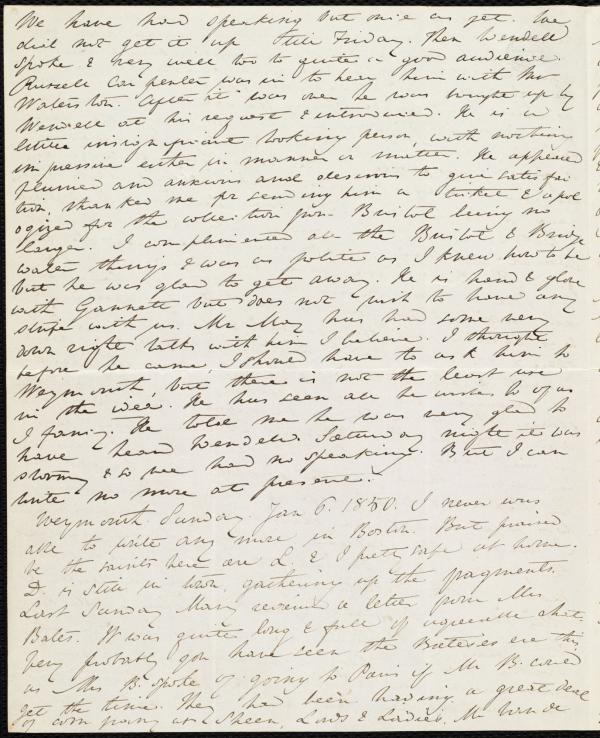 We have had speaking but once as yet. We
did not get it up till Friday. Then Wendell
spoke & very well too to quite a good audience.
Russell Carpenter was in to hear him with Mr
Waterston. After it was over he was brought up by
Wendell at his request & introduced. He is a
little insignificant looking person, with nothing
impressive either in manner or matter. He appeared
flurried and anxious and desirous to give satisfac
tion, thanked me for sending him a ticket & apol
ogized for the collection from Bristol being no
larger. I complimented all the Bristol & Bridg
water things & was as polite as I knew how to be
but he was glad to get away. He is hand & glove
with Gannett but does not wish to have any
strife with us. Mr May has had some very
down right talks with him I believe. I thought
before he came, I should have to ask him to
Weymouth, but there is not the least use
in the idea. He has seen all he wishes to of us
I fancy. He told me he was very glad to
have heard Wendell. Saturday night it was
stormy & so we had no speaking. But I can
write no more at present.
Weymouth. Sunday. Jan 6. 1850. I never was
able to write any more in Boston. But praised
be the saints here are L. & I pretty safe at home.
D. is still in town gathering up the fragments.
Last Sunday Mary received a letter from Mrs
Bates. It was quite long & full of agreeable chat.
Very probably you have seen the Bateses ere this,
as Mrs B. spoke of going to Paris if Mr B. could
get the time. They had been having a great deal
of company at Sheen, Lords & Ladies, Mr Van de